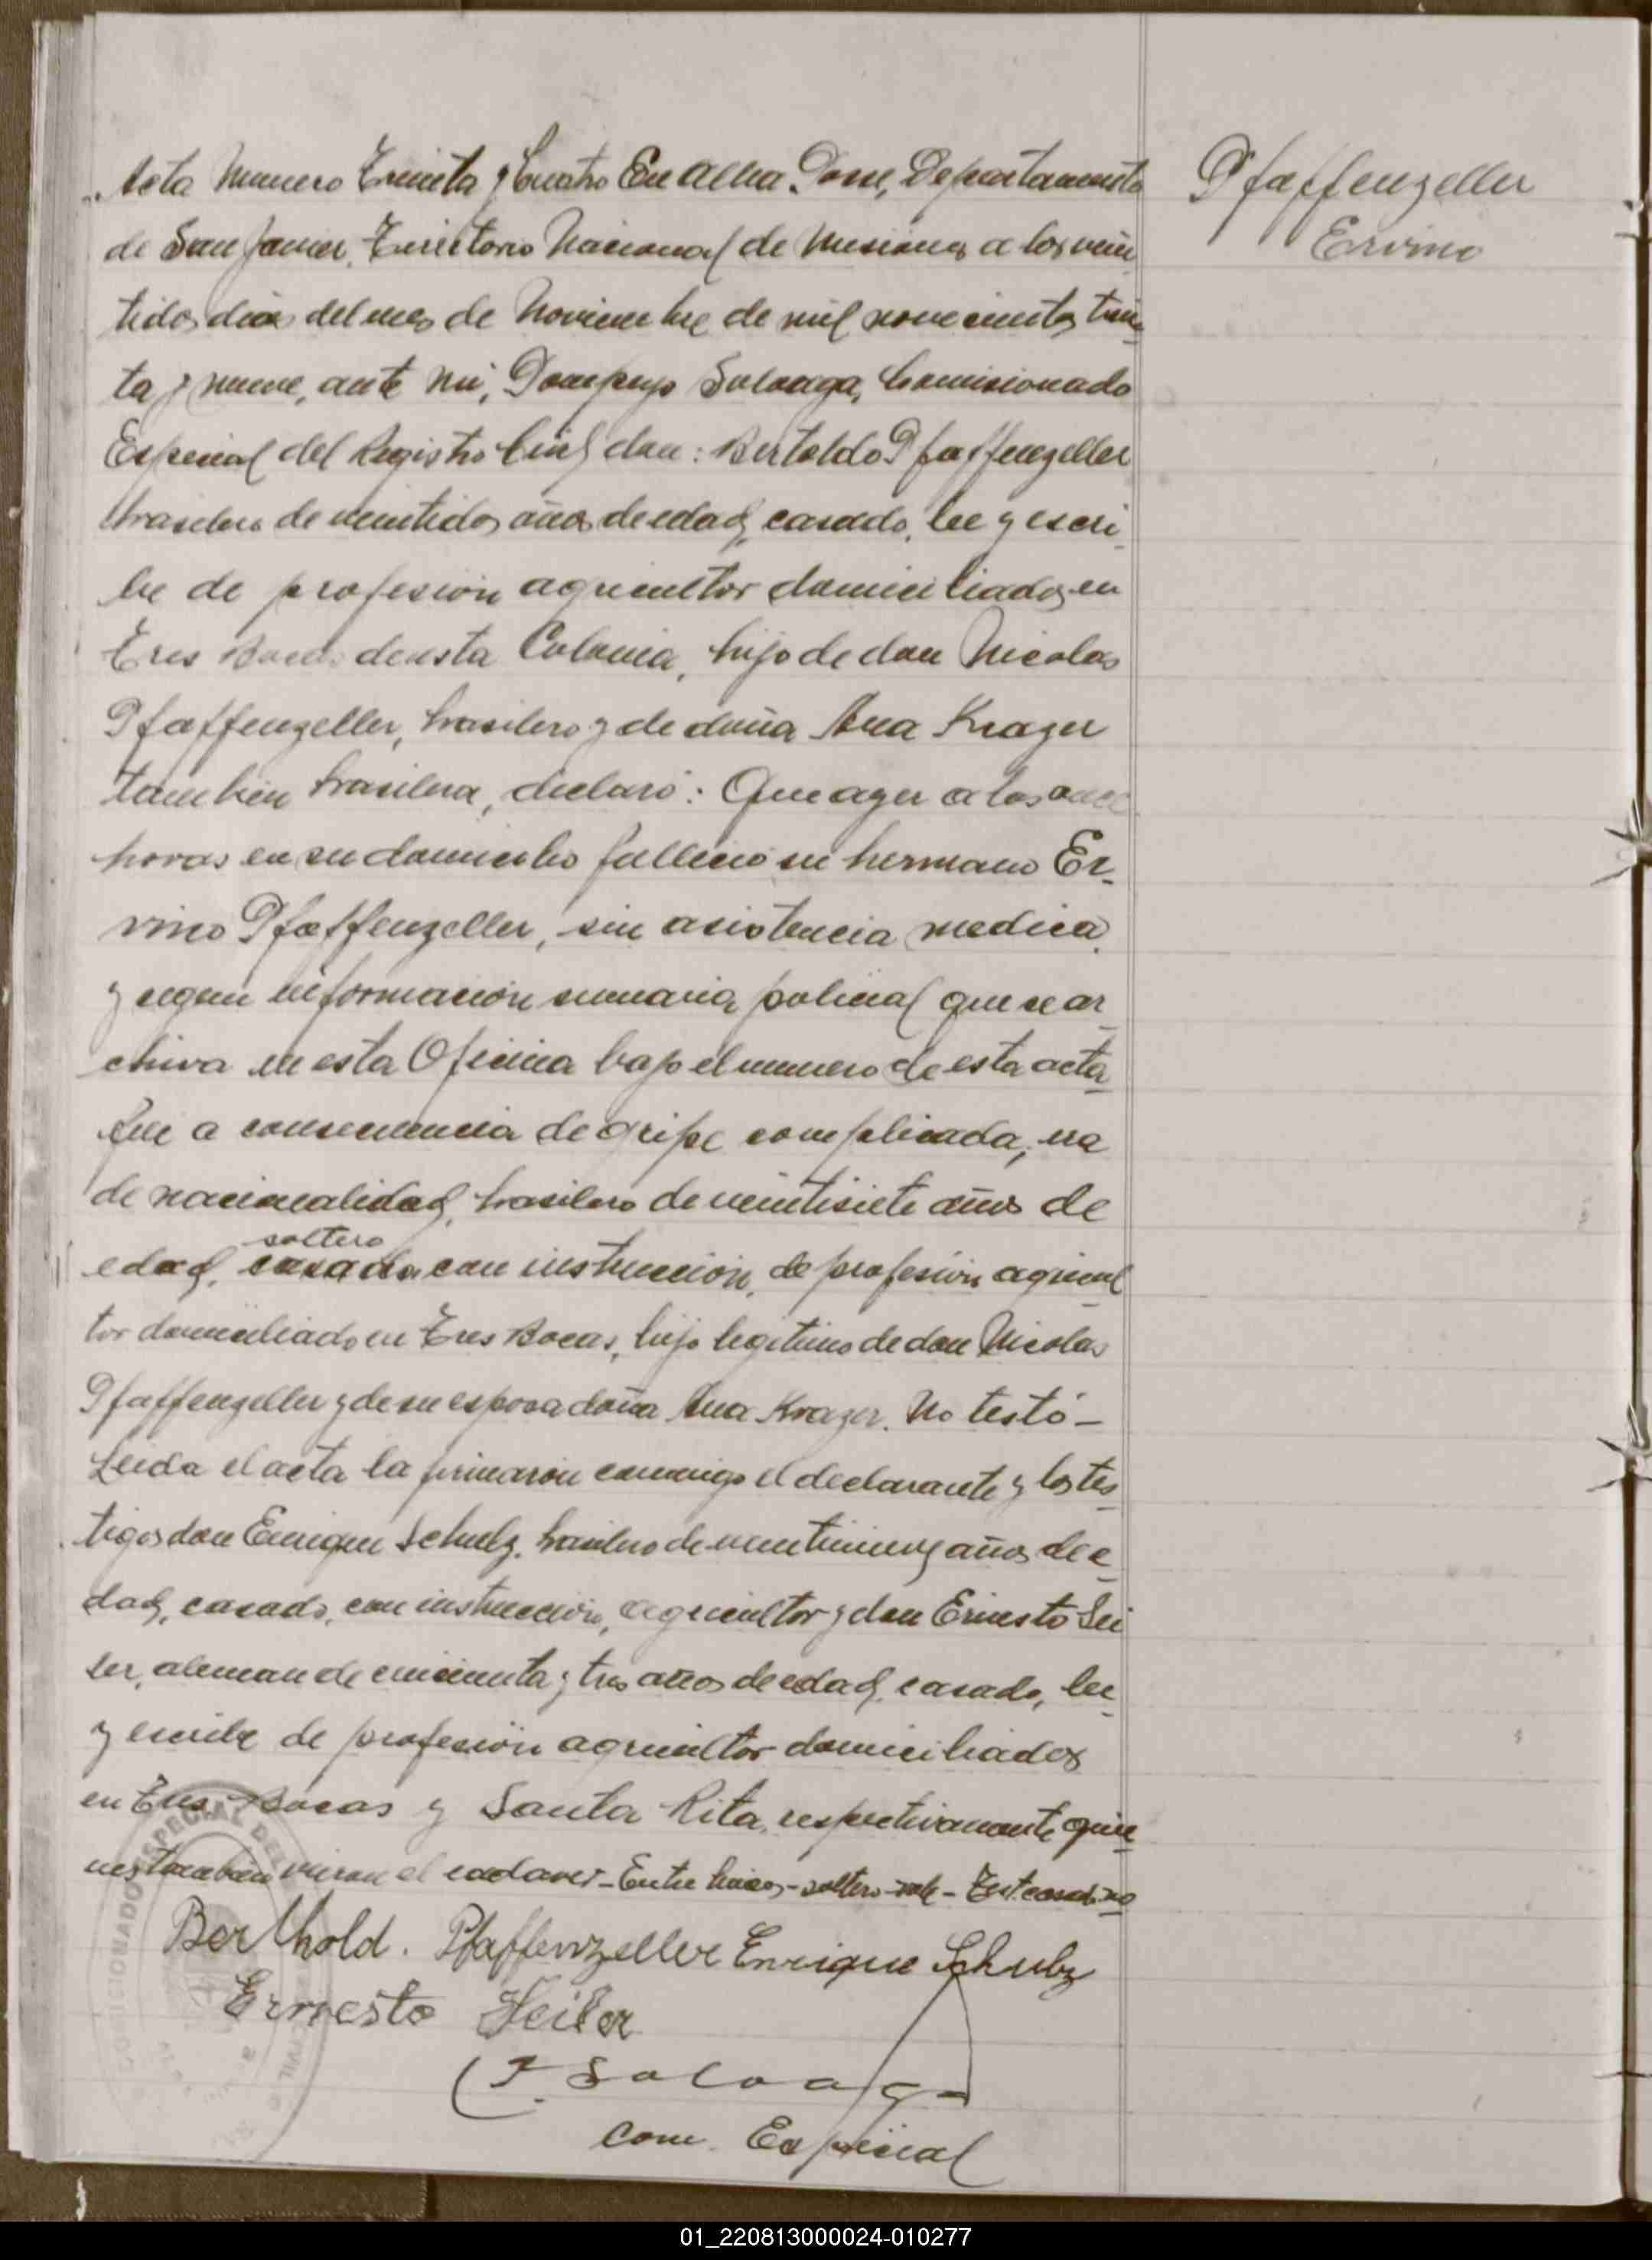 Acta Numero Treinta y Cuatro En Alba Posse, Departamento
de San Javier, Territorio Nacional de Misiones a los vein
tidos dias del mes de Noviembre de mil novecientos trein
ta y nueve, ante mi, Pompeyo Soloaga, Comisionado
Especial del Registro Civil don: Bertoldo Pfaffenzeller
brasilero de veintidos años de edad, casado, lee y escri
be de profesión agricultor domiciliado, en
Tres Bocas de esta Colonia, hijo de don Nicolas
Pfaffenzeller, brasilero y de doña Ana Krazer
tambien brasilera, declaró: Que ayer a las once
horas en su domicilio falleció su hermano Er-
vino Pfaffenzeller, sin asistencia medica,
y segun información sumaria policial que se ar
chiva en esta Oficina bajo el numero de esta acta
fue a consecuencia de gripe complicada, era
de nacionalidad, brasilero de veintisiete años de
soltero
edad, casado, con instrucción, de profesión agricul
tor domiciliado en Tres Bocas, hijo legitimo de don Nicolas
Pfaffenzeller y de su esposa doña Ana Krazer. No testó-
Leida el acta la firmaron conmigo el declarante y los tes
tigos don Enrique Schulz, brasilero de veintinueve años de e
dad, casado, con instrucción, agricultor y don Ernesto Sei
ler, aleman de cincuenta y tres años de edad, casado, lee
y escribe de profesión agricultor domiciliados
en Tres Bocas y Santa Rita, respectivamente quie
nes tambien vieron el cadaver-Entre lineas-soltero-vale-Test. casado no
Berthold. Pfaffenzeller Enrique Schulz
Ernesto Seiler
P. Soloaga
Com. Especial
Pfaffenzeller
Ervino
COMISIONADO ESPECIAL DEL
CIVIL
01_220813000024-010277